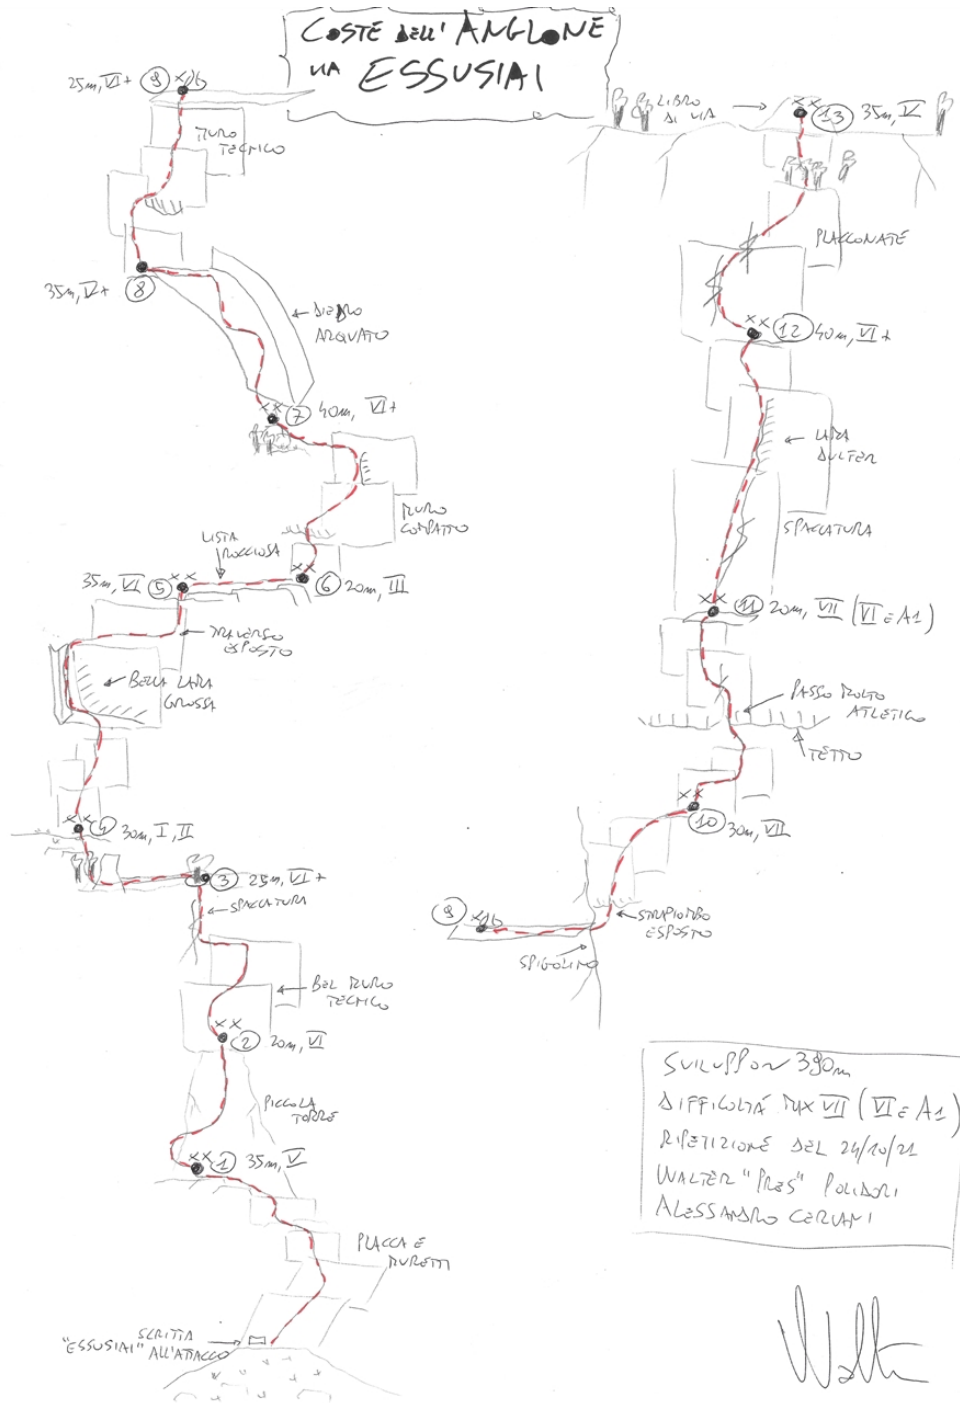 COSTE DELL'ANGLONE
VIA ESSUSIAI
25m, VI+ 9
MURO
TECNICO
35m, V+ 8
DIEDRO
ARQUATO
7 40m, VI+
MURO
COMPATTO
LISTA
ROCCIOSA
35m, VI 5
6 20m, III
TRAVERSO
ESPOSTO
BELLA LAMA
GROSSA
4 30m, I, II
3 25m, VI+
SPACCATURA
BEL MURO
TECNICO
2 20m, VI
PICCOLA
TORRE
1 35m, V
PLACCA E
MURETTI
SCRITTA
"ESSUSIAI" ALL'ATTACCO
LIBRO
DI VIA
13 35m, V
PLACCONATE
12 40m, VI+
LAMA
DULFER
SPACCATURA
11 20m, VII (VI e A1)
PASSO MOLTO
ATLETICO
TETTO
10 30m, VII
9
STRAPIOMBO
ESPOSTO
SPIGOLINO
SVILUPPO 390m
DIFFICOLTÁ MAX VII (VI e A1)
RIPETIZIONE DEL 24/10/21
WALTER "PRES" POLIDORI
ALESSANDRO CERIANI